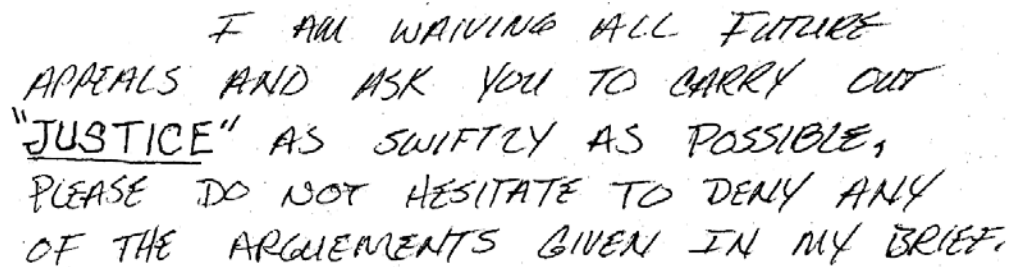 I AM WAIVING ALL FUTURE
APPEALS AND ASK YOU TO CARRY OUT
"JUSTICE" AS SWIFTLY AS POSSIBLE,
PLEASE DO NOT HESITATE TO DENY ANY
OF THE ARGUEMENTS GIVEN IN MY BRIEF.